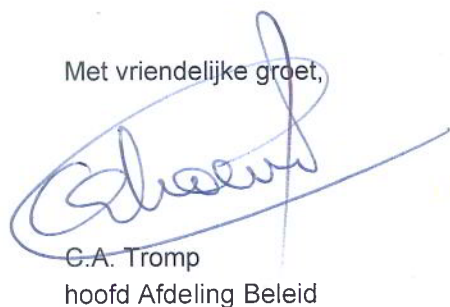 Met vriendelijke groet,
C.A. Tromp
hoofd Afdeling Beleid